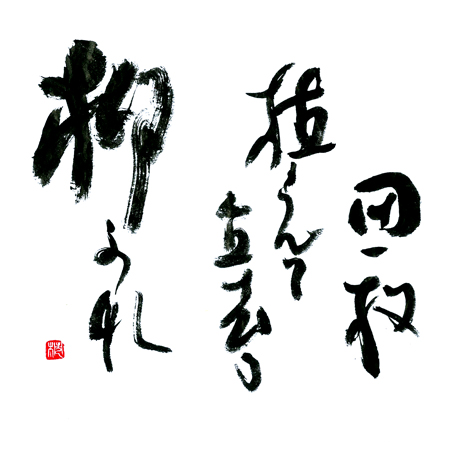 田一枚
植ゑて
立去る
柳かな